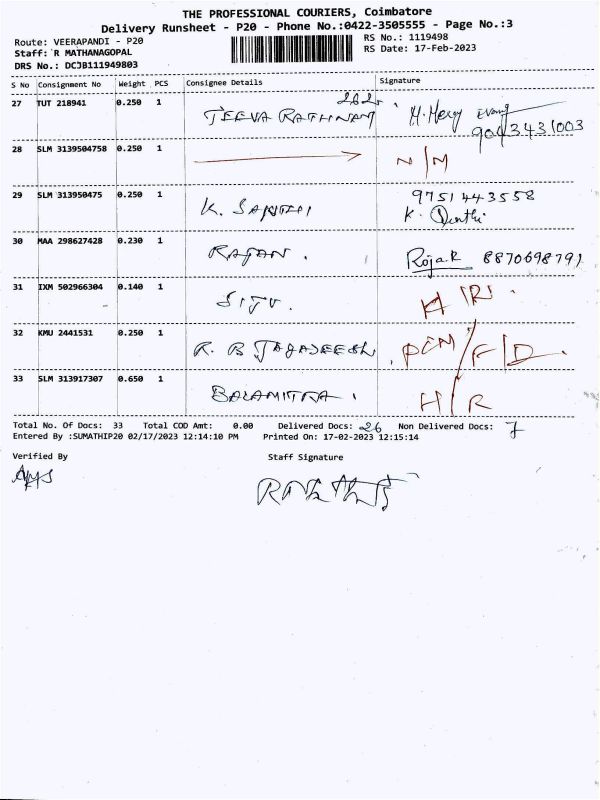 THE PROFESSIONAL COURIERS, Coimbatore
Delivery Runsheet - P20 - Phone No.:0422-3505555 - Page No.:3
Route: VEERAPANDI - P20
Staff: R MATHANAGOPAL
DRS No.: DCJB111949803
RS No.: 1119498
RS Date: 17-Feb-2023
S No Consignment No Weight PCS Consignee Details Signature
27 TUT 218941 0.250 1 JEEVA RATHNAM 262 M. Mercy 9043431003
28 SLM 3139504758 0.250 1 N/M
29 SLM 313950475 0.250 1 K. SANTHI 9751443558
K.
30 MAA 298627428 0.230 1 RAJAN. RojaR 8870698791
31 IXM 502966304 0.140 1 SIJU. H/R.
32 KMU 2441531 0.250 1 R. B JAGADEESH, PCM/F/D.
33 SLM 313917307 0.650 1 BALAMITRA. H/R
Total No. Of Docs: 33 Total COD Amt: 0.00 Delivered Docs: 26 Non Delivered Docs: 7
Entered By :SUMATHIP20 02/17/2023 12:14:10 PM Printed On: 17-02-2023 12:15:14
Verified By Staff Signature